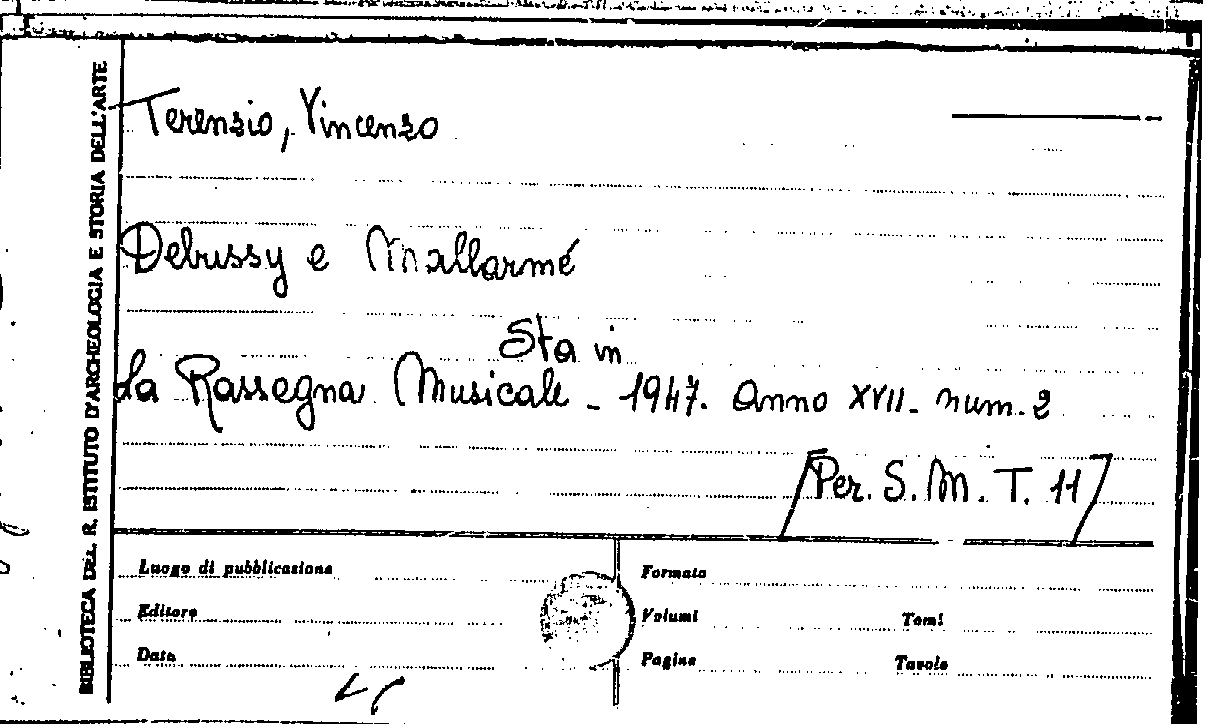 BIBLIOTECA DEL R. ISTITUTO D'ARCHEOLOGIA E STORIA DELL'ARTE
Terenzio, Vincenzo
Debussy e Mallarmé
Sta in
La Rassegna Musicale - 1947. Anno XVII - num. 2
/Per. S. M. T. 11/
Luogo di pubblicazione
Formato
Editore
Volumi
Tomi
Data
Pagine
Tavole